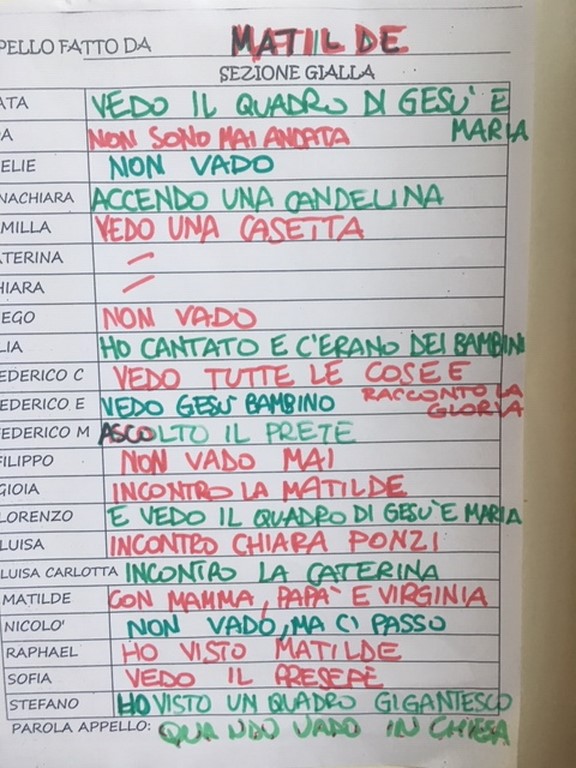 PELLO FATTO DA MATILDE
SEZIONE GIALLA
ATA VEDO IL QUADRO DI GESU' E MARIA
A NON SONO MAI ANDATA
ELIE NON VADO
NACHIARA ACCENDO UNA CANDELINA
MILLA VEDO UNA CASETTA
TERINA –
HIARA –
EGO NON VADO
LIA HO CANTATO E C'ERANO DEI BAMBINI
EDERICO C VEDO TUTTE LE COSE E RACCONTO LA GLORIA
EDERICO E VEDO GESU' BAMBINO
FEDERICO M ASCOLTO IL PRETE
FILIPPO NON VADO MAI
GIOIA INCONTRO LA MATILDE
LORENZO E VEDO IL QUADRO DI GESU' E MARIA
LUISA INCONTRO CHIARA PONZI
LUISA CARLOTTA INCONTRO LA CATERINA
MATILDE CON MAMMA, PAPA' E VIRGINIA
NICOLO' NON VADO, MA CI PASSO
RAPHAEL HO VISTO MATILDE
SOFIA VEDO IL PRESEPE
STEFANO HO VISTO UN QUADRO GIGANTESCO
PAROLA APPELLO: VADO IN CHIESA